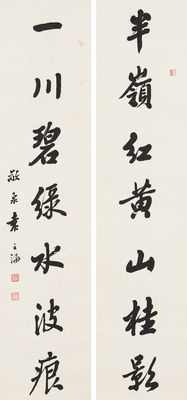 半嶺紅黃山桂影
一川碧綠水波痕
敬泉袁